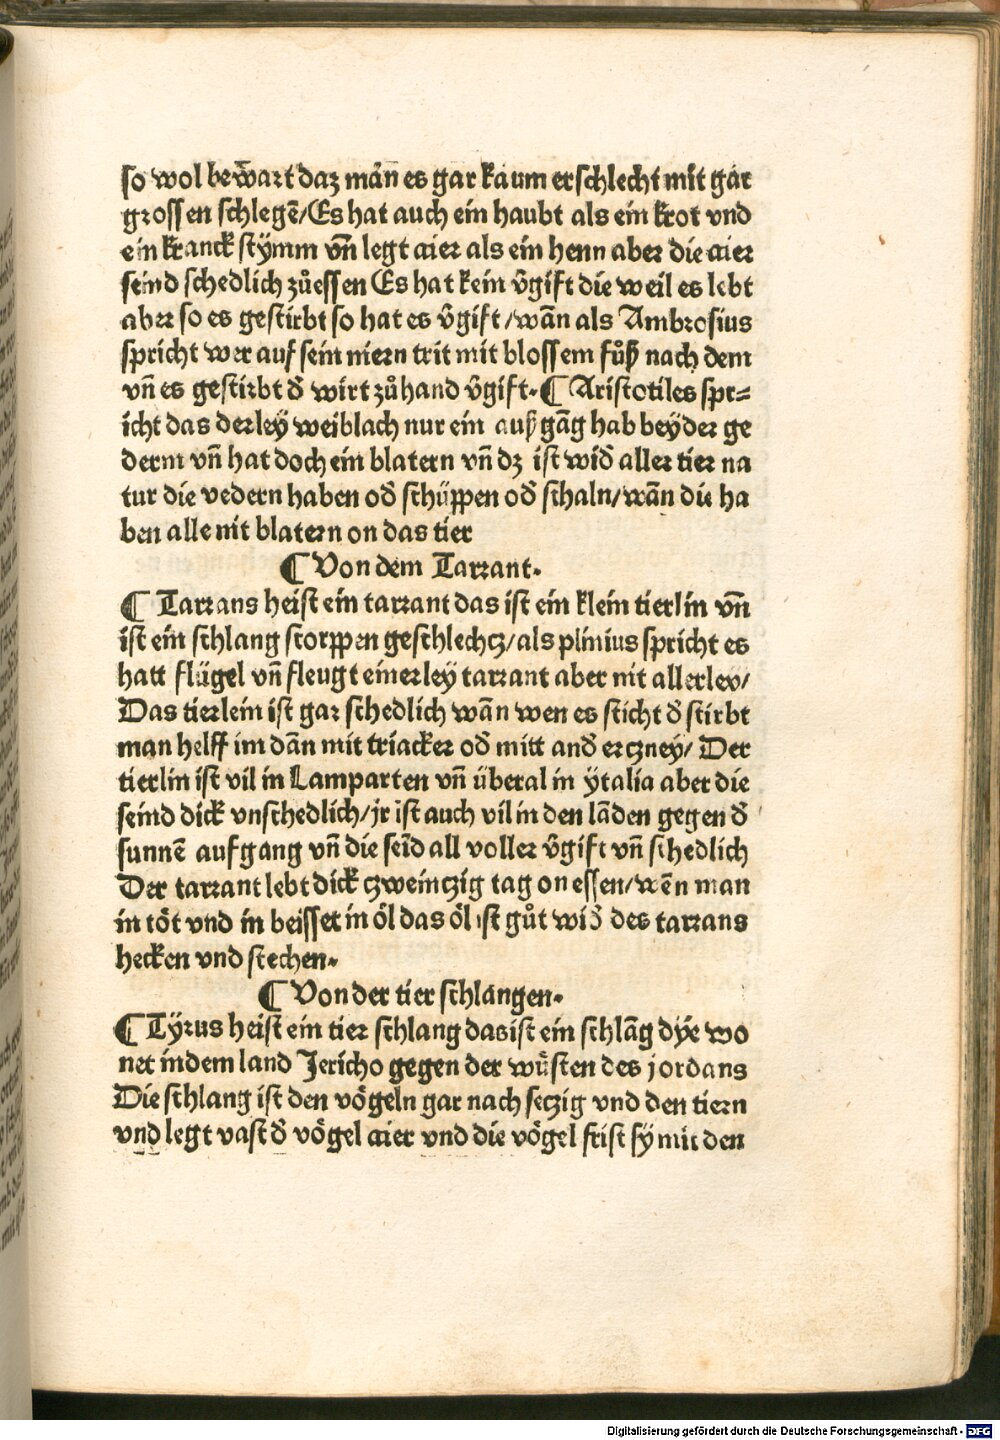 so wol bewart daz mãn es gar kaum erschlecht mit gar
grossen schlegẽ/Es hat auch ein haubt als ein krot vnd
ein kranck stÿmm vñ legt aier als ein henn aber die aier
seind schedlich zůessen Es hat kein v̄gift die weil es lebt
aber so es gestirbt so hat es v̄gift/wãn als Ambrosius
spricht wer auf sein niern trit mit blossem fůß nach dem
vñ es gestirbt đ wirt zůhand v̄gift.¶Aristotiles spr⸗
icht das derleÿ weiblach nur ein außgãg hab beÿder ge
derm vñ hat doch ein blatern vñ dz ist wid̄ aller tier na
tur die vedern haben od̄ schüppen od̄ schaln/wãn die ha
ben alle nit blatern on das tier
¶Von dem Tarrant.
¶ Tarrans heist ein tarrant das ist ein klein tierlin vñ
ist ein schlang scorppen geschlechcz/als plinius spricht es
hatt flügel vñ fleugt einerleÿ tarrant aber nit allerley/
Das tierlein ist gar schedlich wãn wen es sticht đ stirbt
man helff im dãn mit triacker od̄ mitt and̄ erczneÿ/ Der
tierlin ist vil in Lamparten vñ überal in ÿtalia aber die
seind dick vnschedlich/jr ist auch vil in den lãden gegen đ
sunnẽ aufgang vñ die seĩd all voller v̄gift vñ schedlich
Der tarrant lebt dick czweinczig tag on essen/wẽn man
in töt vnd in beisset in öl das öl ist gůt wid̄ des tarrans
hecken vnd stechen.
¶Von der tier schlangen.
¶Tÿrus heist ein tier schlang das ist ein schlãg dÿe wo
net in dem land Jericho gegen der wůsten des jordans
Die schlang ist den vögeln gar nach seczig vnd den tiern
vnd legt vast đ vögel aier vnd die vögel frist sÿ mit den
Digitalisierung gefördert durch die Deutsche Forschungsgemeinschaft - DFG